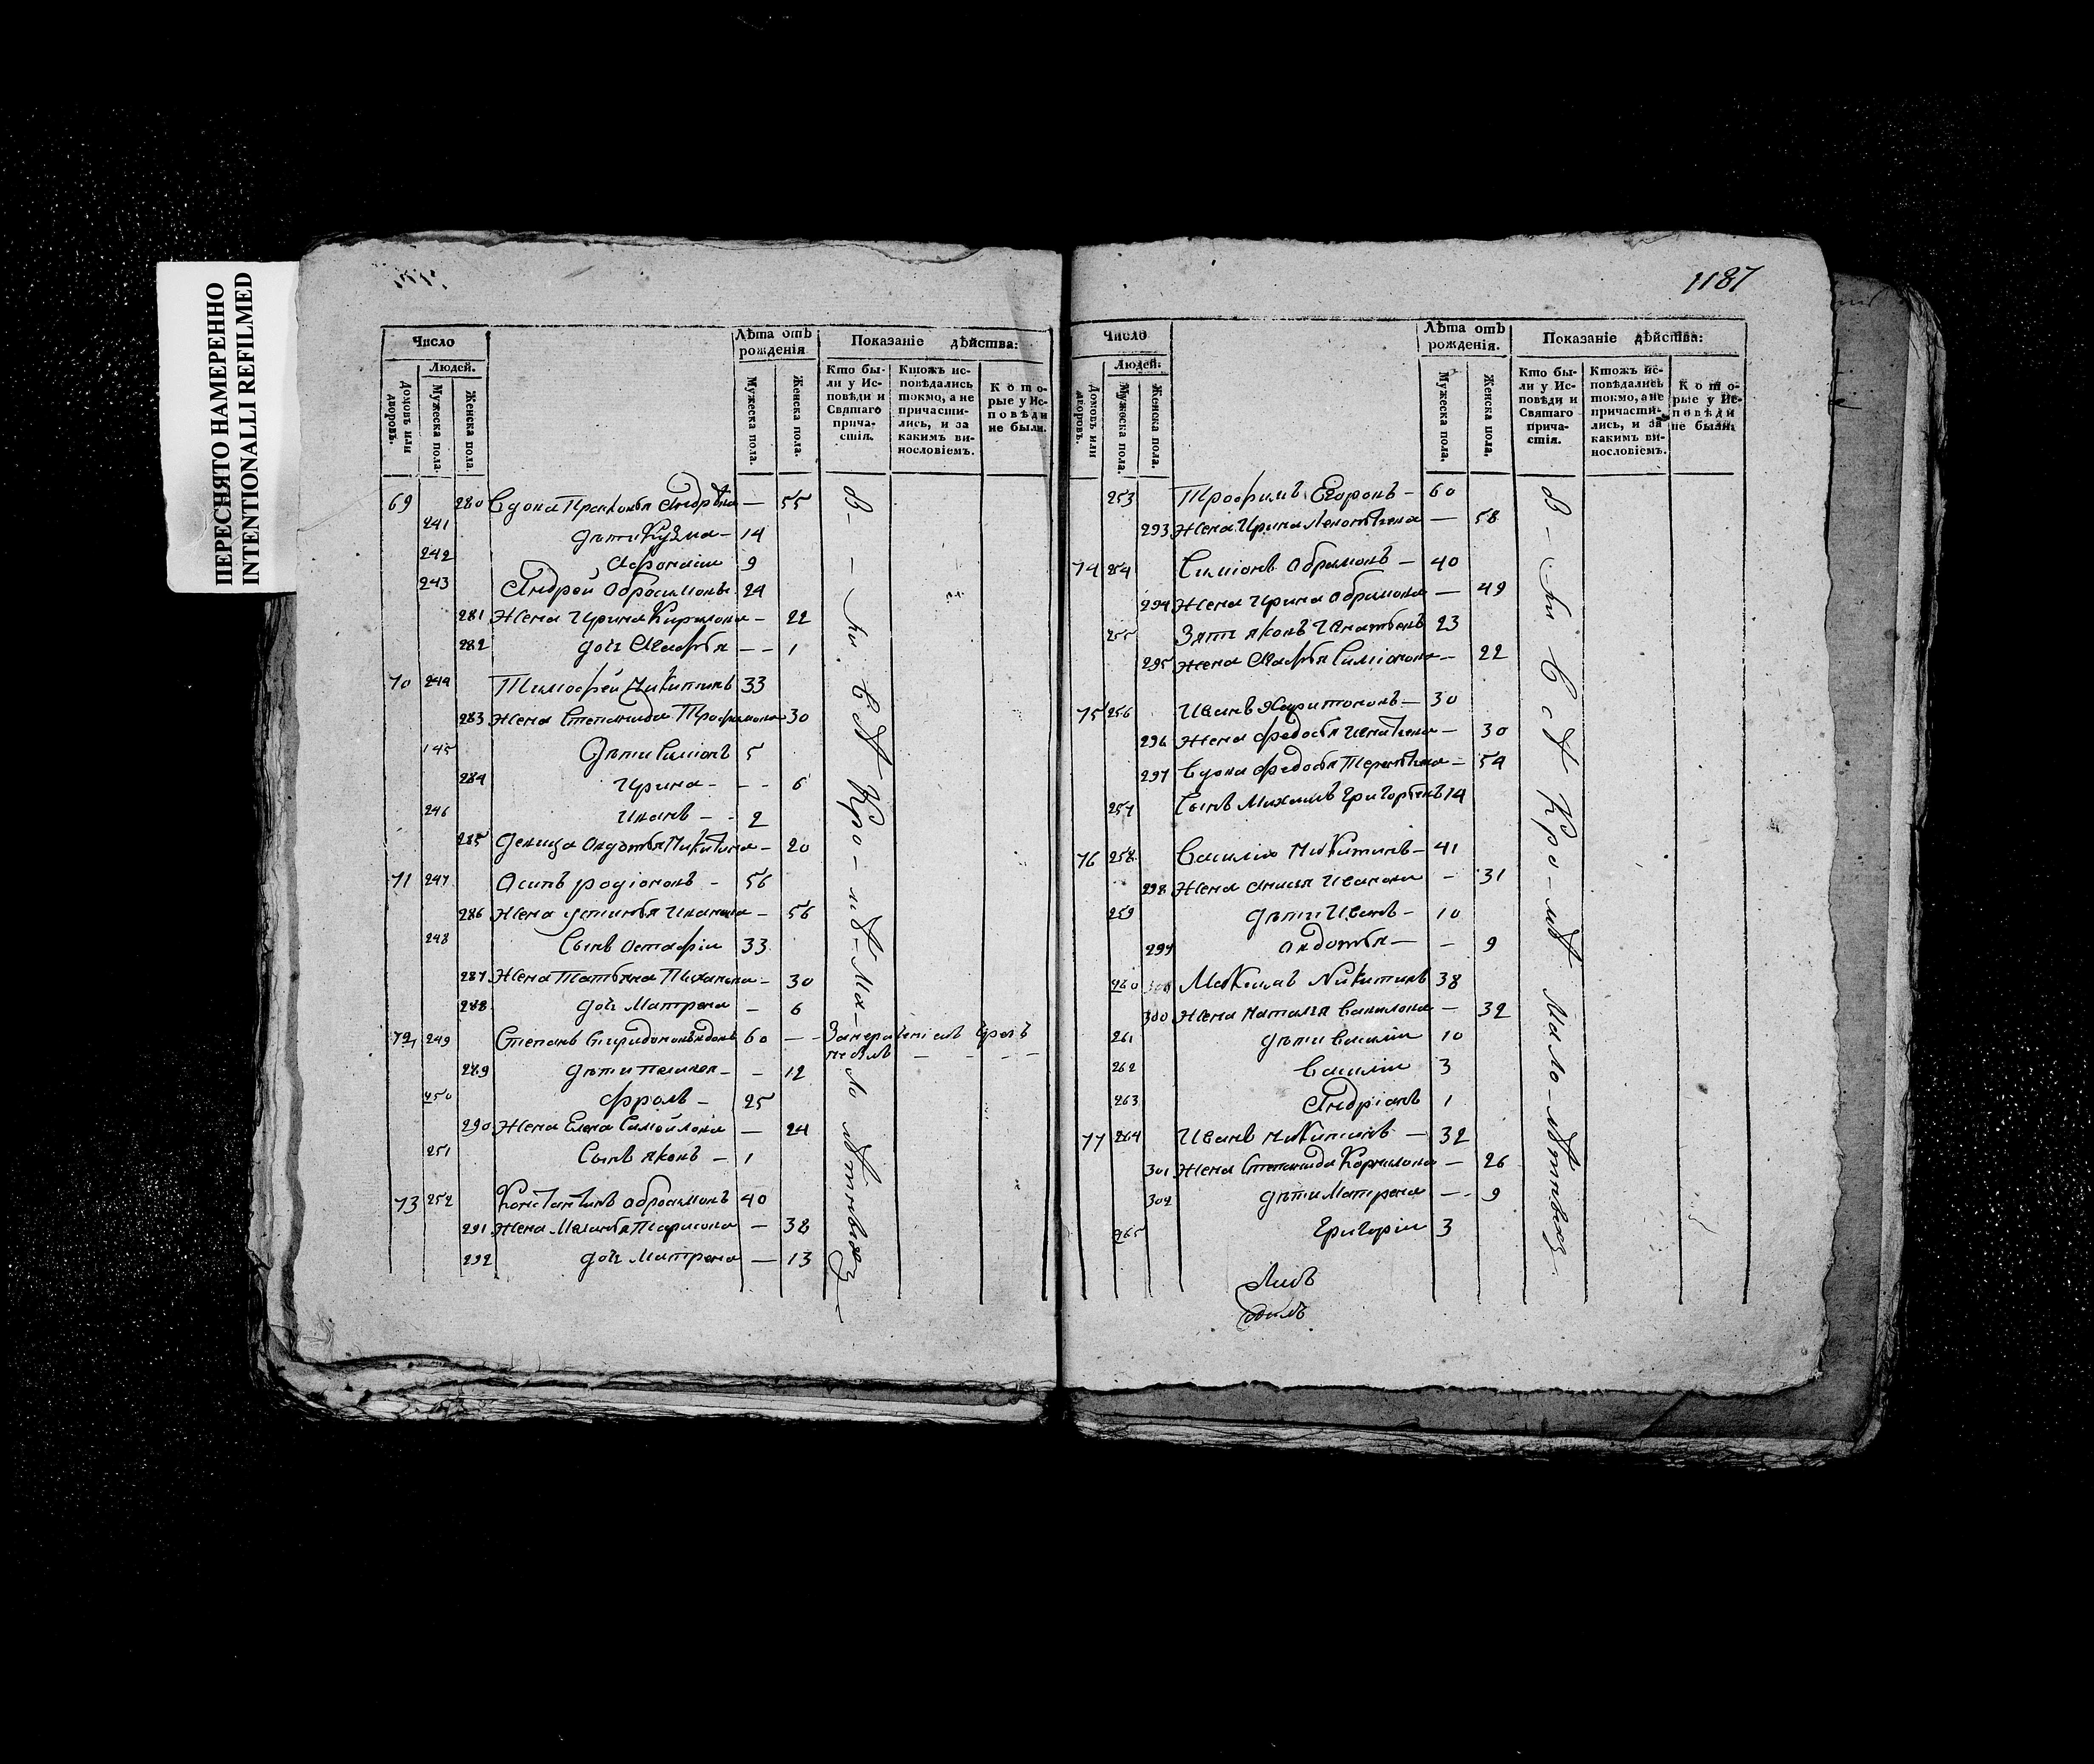 ПЕРЕСНЯТО НАМЕРЕННО
INTENTIONALLI REFILMED
1187
Число
Людей.
Домовъ или дворовъ.
Мужеска пола.
Женска пола.
Лѣта отъ рожденія
Мужеска пола.
Женска пола.
Показаніе дѣйства:
Кто были у Исповѣди и Святаго причастія.
Ктожъ исповѣдались токмо, а не причастились, и за какимъ винословіемъ.
Которые у Исповѣди не были.
69 280 Вдова Праковья Андрѣва — 55
241 дѣти Кузма — 14
242 Афонасіи 9
243 Андрей Абросимовъ 24
281 Жена Ирина Кириловa — 22
282 дочь Агафья — — 1
70 244 Тимофей Никитинъ 33
283 Жена Степанида Трофимова 30
145 Дѣти Симіонъ 5
284 Ирина — — — 6
246 Иванъ — — 2
285 Девица Авдотья Никитина — 20
71 247 Осипъ родіоновъ — 56
286 Жена устинья Иванова — 56
248 Сынъ Астафіи 33
287 Жена Татьяна — 30
288 дочь Матрена — 6
72 249 Степанъ Спиридоновъ вдовъ 60 — —
289 дѣти Пелагея — — 12
250 фролъ — 25
290 Жена Елена Самойлова — 24
251 Сынъ яковъ — 1
73 252 Константинъ Абросимовъ 40
291 Жена Маланья — 38
292 дочь Матрена — 13
Число
Людей:
Домовъ или дворовъ.
Мужеска пола.
Женска пола.
Лѣта отъ рожденія.
Мужеска пола.
Женска пола.
Показаніе дѣйства:
Кто были у Исповѣди и Святаго причастія.
Ктожъ исповѣдались токмо, а не причастились, и за какимъ винословіемъ.
Которые у Исповѣди не были.
253 Трофимъ Егоровъ — 60
293 Жена Ирина — 58
74 254 Симіонъ Абрамовъ — 40
294 Жена Ирина Абрамова — 49
255 Зять яковъ Игнатьевъ 23
295 Жена Агафья Симіонова — 22
75 256 Иванъ Харитоновъ — 30
296 Жена федосья Игнатьева — 30
297 Вдова федосья — 54
257 Сынъ Михаилъ Григорьевъ 14
76 258 Василіи Никитинъ — 41
298 Жена Анисья Иванова — 31
259 дѣти Иванъ — 10
299 авдотья — — 9
260 Максимъ Никитинъ 38
300 Жена Наталья — 32
261 дѣти Василіи 10
262 Василіи 3
263 Андріанъ 1
77 264 Иванъ Никитинъ — 32
301 Жена Степанида Кормилова — 26
302 дѣти Матрена — — 9
265 Григоріи 3